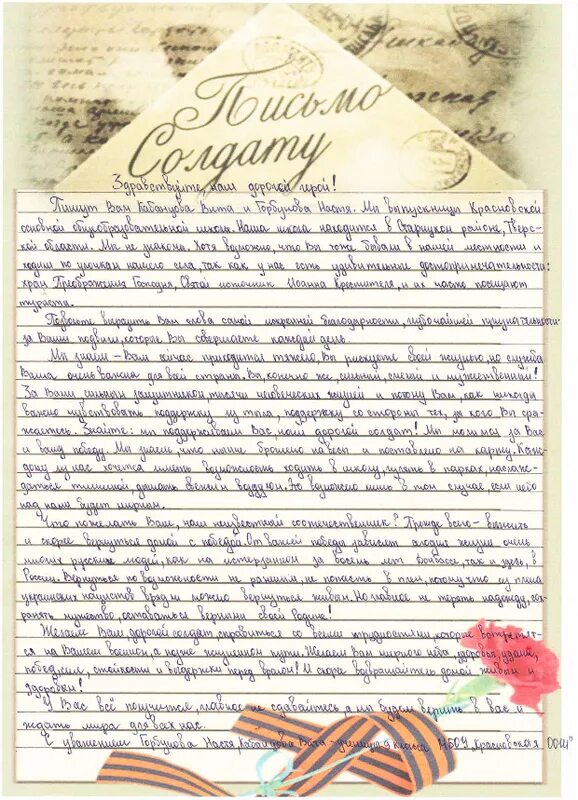 Письмо
Солдату
Здравствуйте, наш дорогой герой!
Пишут Вам Кабанцова Вита и Горбунова Настя. Мы выпускницы Красновской
основной общеобразовательной школы. Наша школа находится в Старицком районе, Твер-
ской области. Мы не знакомы. Хотя возможно, что Вы тоже бывали в нашей местности и
ходили по улочкам нашего села, так как у нас есть удивительные достопримечательности:
храм Преображения Господня, Святой источник Иоанна Крестителя, и их часто посещают
туристы.
Позвольте выразить Вам слова самой искренней благодарности, глубочайшей признательности
за Ваши подвиги, которые Вы совершаете каждый день.
Мы знаем - Вам сейчас приходится тяжело, Вы рискуете своей жизнью, но служба
Ваша очень важна для всей страны. Вы, конечно же, сильный, смелый и мужественный!
За Вами, сильным защитником, тысячи человеческих жизней и потому Вам, как никогда
важно чувствовать поддержку из тыла, поддержку со стороны тех, за кого Вы сра-
жаетесь. Знайте: мы поддерживаем Вас, наш дорогой солдат! Мы молимся за Вас
и вашу победу. Мы знаем, что нынче брошено на весы и поставлено на карту. Каж-
дому из нас хочется иметь возможность ходить в школу, гулять в парках, наслаж-
даться тишиной, дышать свежим воздухом. Но возможно лишь в том случае, если небо
над нами будет мирным.
Что пожелать Вам, наш неизвестный соотечественник? Прежде всего - выжить
и скорее вернуться домой с победой. От вашей победы зависят сегодня жизни очень
многих русских людей, как на истерзанном за восемь лет Донбассе, так и здесь, в
России. Вернуться по возможности не раненым, не попасть в плен, потому что из плена
украинских нацистов вряд ли можно вернуться живым. Но главное не терять надежду, сох-
ранять мужество, оставаться верными своей Родине!
Желаем Вам дорогой солдат, справиться со всеми трудностями, которые встретят-
ся на Вашем военном, а позже жизненном пути. Желаем Вам мирного неба, здоровья, удачи,
победы, сил, стойкости и выдержки перед врагом! И скорее возвращайтесь домой живым и
здоровым!
У Вас всё получится, главное не сдавайтесь, а мы будем верить в вас и
ждать мира для всех нас.
С уважением Горбунова Настя, Кабанцова Вита - ученицы 9 класса МБОУ "Красновская ООШ"